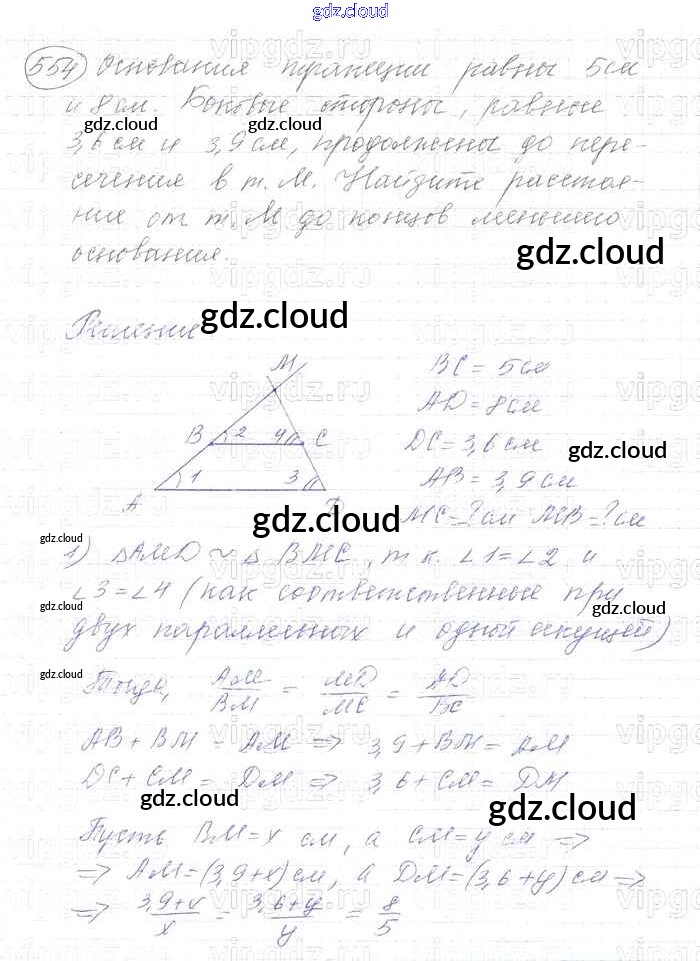 gdz.cloud
554 Основания трапеции равны 5см
и 8 см. Боковые стороны, равные
gdz.cloud gdz.cloud
3,6 см и 3,9 см, продолжены до пере-
сечения в т. М. Найдите расстоя-
ние от т. М до концов меньшего
основания.
gdz.cloud
Решение
gdz.cloud
M
B 2 4 C
A 1 3
BC = 5см
AD = 8см
DC = 3,6 см
gdz.cloud
AB = 3,9 см
MC = ? см MB = ? см
gdz.cloud
gdz.cloud
1) △AMD ~ △ BMC, т. к. ∠1=∠2 и
∠3=∠4 (как соответственные при
gdz.cloud gdz.cloud
двух параллельных и одной секущей)
gdz.cloud
Тогда, AM/BM = MD/MC = AD/BC
AB + BM = AM => 3,9 + BM = AM
DC + CM = DM => 3,6 + CM = DM
gdz.cloud gdz.cloud
Пусть BM = x см, а CM = y см =>
=> AM = (3,9+x) см, а DM = (3,6+y) см =>
=> (3,9+x)/x = (3,6+y)/y = 8/5